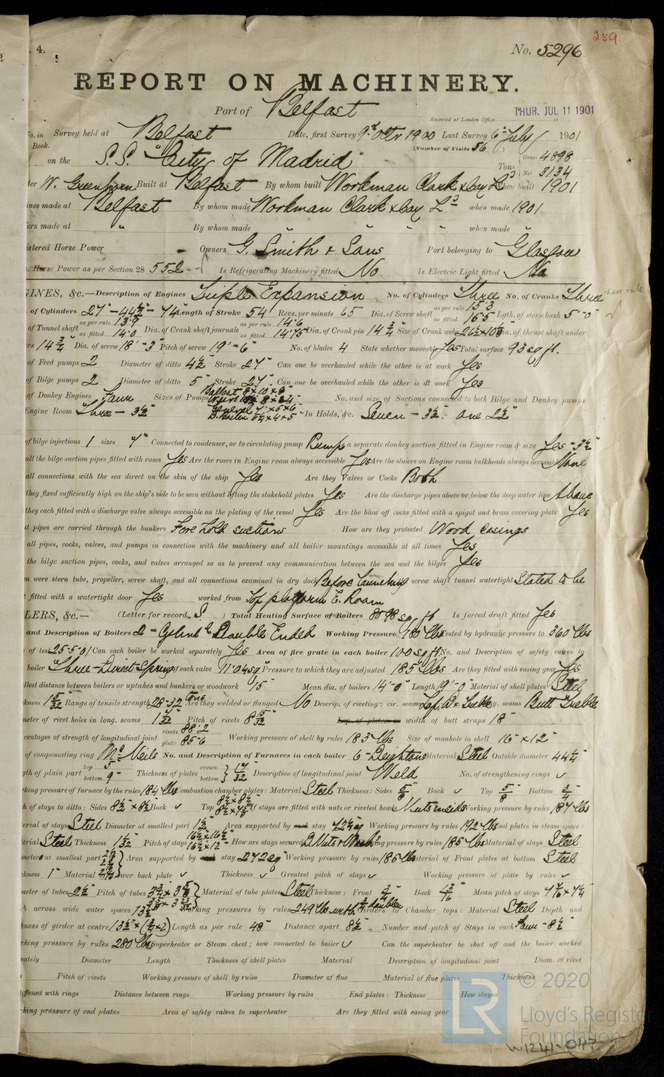 4.
No. 5296
259
REPORT ON MACHINERY.
Port of Belfast
Received at London Office THUR. JUL 11 1901
No. in Survey held at Belfast Date, first Survey 9th Octr 1900 Last Survey 6th July 1901
Book. (Number of Visits 56
on the S.S. "City of Madrid" Tons Gross 4898 Net 3134
W. Built at Belfast By whom built Workman Clark & Coy Ld when built 1901
made at Belfast By whom made Workman Clark & Coy Ld when made 1901
made at " By whom made " " when made "
Registered Horse Power Owners G. Smith & Sons Port belonging to Glasgow
Horse Power as per Section 28 552 Is Refrigerating Machinery fitted No Is Electric Light fitted No
GINES, &c.—Description of Engines Triple Expansion No. of Cylinders Three No. of Cranks Three
of Cylinders 27"-44½"-74 Length of Stroke 54" Revs. per minute 65 Dia. of Screw shaft as per rule 15.3 as fitted 15.5 Lgth. of stern bush 5'-0"
of Tunnel shaft as per rule as fitted 14.0 Dia. of Crank shaft journals as per rule 14.6 as fitted 14.75 Dia. of Crank pin 14¾" Size of Crank webs Dia. of thrust shaft under
14¾" Dia. of screw 18'-3" Pitch of screw 19'-6" No. of blades 4 State whether moveable Yes Total surface 93 sq ft.
of Feed pumps 2 Diameter of ditto 4½ Stroke 27" Can one be overhauled while the other is at work Yes
of Bilge pumps 2 Diameter of ditto 5" Stroke 27" Can one be overhauled while the other is at work Yes
of Donkey Engines Four Sizes of Pumps No. and size of Suctions connected to both Bilge and Donkey pumps
Engine Room Three - 3½" In Holds, &c. Seven - 3½" one 2½"
of bilge injections 1 sizes 7" Connected to condenser, or to circulating pump Pumps a separate donkey suction fitted in Engine room & size Yes - 3½"
all the bilge suction pipes fitted with roses Yes Are the roses in Engine room always accessible Yes Are the sluices on Engine room bulkheads always accessible None
all connections with the sea direct on the skin of the ship Yes Are they Valves or Cocks Both
they fixed sufficiently high on the ship's side to be seen without lifting the stokehold plates Yes Are the discharge pipes above or below the deep water line Above
they each fitted with a discharge valve always accessible on the plating of the vessel Yes Are the blow off cocks fitted with a spigot and brass covering plate Yes
at pipes are carried through the bunkers Fore hold suctions How are they protected Wood casings
all pipes, cocks, valves, and pumps in connection with the machinery and all boiler mountings accessible at all times Yes
the bilge suction pipes, cocks, and valves arranged so as to prevent any communication between the sea and the bilges Yes
were stern tube, propeller, screw shaft, and all connections examined in dry dock Before launching screw shaft tunnel watertight Stated to be
fitted with a watertight door Yes worked from Top platform E. Room
LERS, &c.— (Letter for record S) Total Heating Surface of Boilers sq ft Is forced draft fitted Yes
and Description of Boilers 2 - Cylindl Double Ended Working Pressure 180 lbs tested by hydraulic pressure to 360 lbs
Can each boiler be worked separately Yes Area of fire grate in each boiler 100 sq ft No. and Description of safety valves to
boiler Three - Direct Spring of each valve 11.04 sq" Pressure to which they are adjusted 185 lbs Are they fitted with easing gear Yes
smallest distance between boilers or uptakes and bunkers or woodwork 15" Mean dia. of boilers 14'-0" Length 9'-0" Material of shell plates Steel
Range of tensile strength 28-32 tons Are they welded or flanged No Descrip. of riveting: cir. seams Lap D. & Treble long. seams Butt Treble
meter of rivet holes in long. seams Pitch of rivets Lap of plates or width of butt straps 18"
centages of strength of longitudinal joint rivets 88.2 plate 85.6 Working pressure of shell by rules 183 lbs Size of manhole in shell 16" x 12"
of compensating ring McNeils No. and Description of Furnaces in each boiler 6 - Deightons Material Steel Outside diameter 44¼"
gth of plain part top bottom 9" Thickness of plates crown bottom 17/32" Description of longitudinal joint Weld No. of strengthening rings ✓
king pressure of furnace by the rules 184 lbs Combustion chamber plates: Material Steel Thickness: Sides 5/8 Back ✓ Top 5/8 Bottom
h of stays to ditto: Sides 8½" x 8½" Back ✓ Top If stays are fitted with nuts or riveted heads Nuts inside Working pressure by rules 187 lbs
erial of stays Steel Diameter at smallest part 1½" Area supported by each stay Working pressure by rules 192 lbs End plates in steam space:
erial Steel Thickness Pitch of stays How are stays secured D. Nuts & Wash. Working pressure by rules 185 lbs Material of stays Steel
meter at smallest part Area supported by each stay 272 sq Working pressure by rules 185 lbs Material of Front plates at bottom Steel
ckness 1" Material of Lower back plate ✓ Thickness ✓ Greatest pitch of stays ✓ Working pressure of plate by rules ✓
meter of tubes 2½" Pitch of tubes Material of tube plates Steel Thickness: Front Back Mean pitch of stays
h across wide water spaces 13½" Working pressures by rules 249 lbs Girders to Chamber tops: Material Steel Depth and
kness of girder at centre Length as per rule 48" Distance apart 8½" Number and pitch of Stays in each Four - 8½"
king pressure by rules 280 lbs Superheater or Steam chest; how connected to boiler ✓ Can the superheater be shut off and the boiler worked
rately Diameter Length Thickness of shell plates Material Description of longitudinal joint Diam. of rivet
Pitch of rivets Working pressure of shell by rules Diameter of flue Material of flue plates Thickness
stiffened with rings Distance between rings Working pressure by rules End plates: Thickness How stayed
king pressure of end plates Area of safety valves to superheater Are they fitted with easing gear
© 2020
LR Lloyd's Register
Foundation
W1241-0147